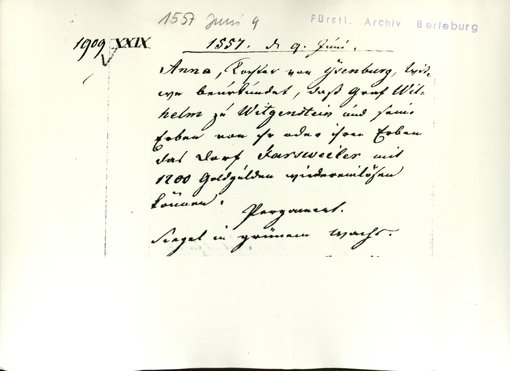 1557 Juni 9
Fürstl. Archiv Berleburg
1909 XXIX
1557. d 9. Juni.
Anna, Tochter von Ysenburg, Wit-
we beurkundet, daß Graf Wil-
helm zu Witgenstein und seine
Erben von ihr oder ihren Erben
das Dorf Farsweiler mit
1200 Goldgulden wiedereinlösen
können.
Pergament.
Siegel in grünem Wachs.